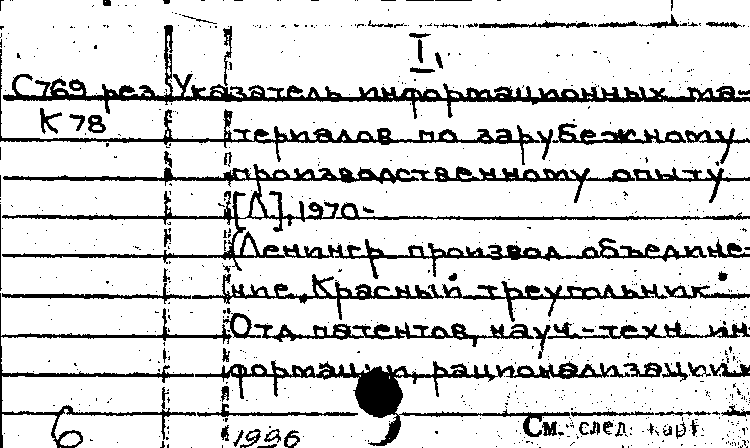 I,
С769 рез Указатель информационных ма-
К 78 териалов по зарубежному
производственному опыту.
[Л], 1970-
(Ленингр. производ. объедине-
ние „Красный треугольник".
Отд. патентов, науч.-техн. ин-
формации, рационализации и
6 1996 См. след. карт.